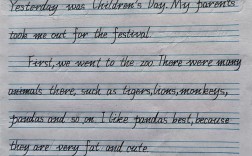 Yesterday was Children's Day. My parents
took me out for the festival.
First, we went to the zoo There were many
animals there, such as tigers, lions, monkeys,
pandas and so on. I like pandas best, because
they are very fat and cute.